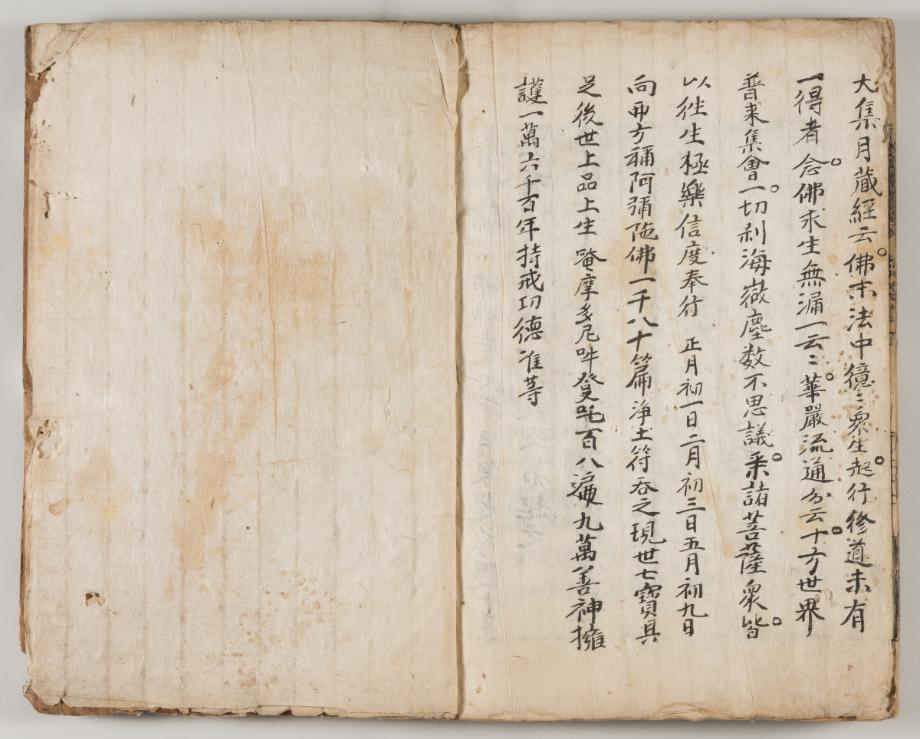 大集月藏經云佛末法中億〻衆生起行修道未有
一得者念佛求生無漏一云〻華嚴流通分云十方世界
普來集會一切刹海微塵数不思議釆諸菩薩衆皆
以徃生極樂信度奉行 正月初一日二月初三日五月初九日
向西方稱阿彌陁佛一千八十篇淨土符吞之現世七寶具
足後世上品上生 唵摩多尼吽癹吒百八遍九萬善神擁
護一萬六千百年持戒功德准等